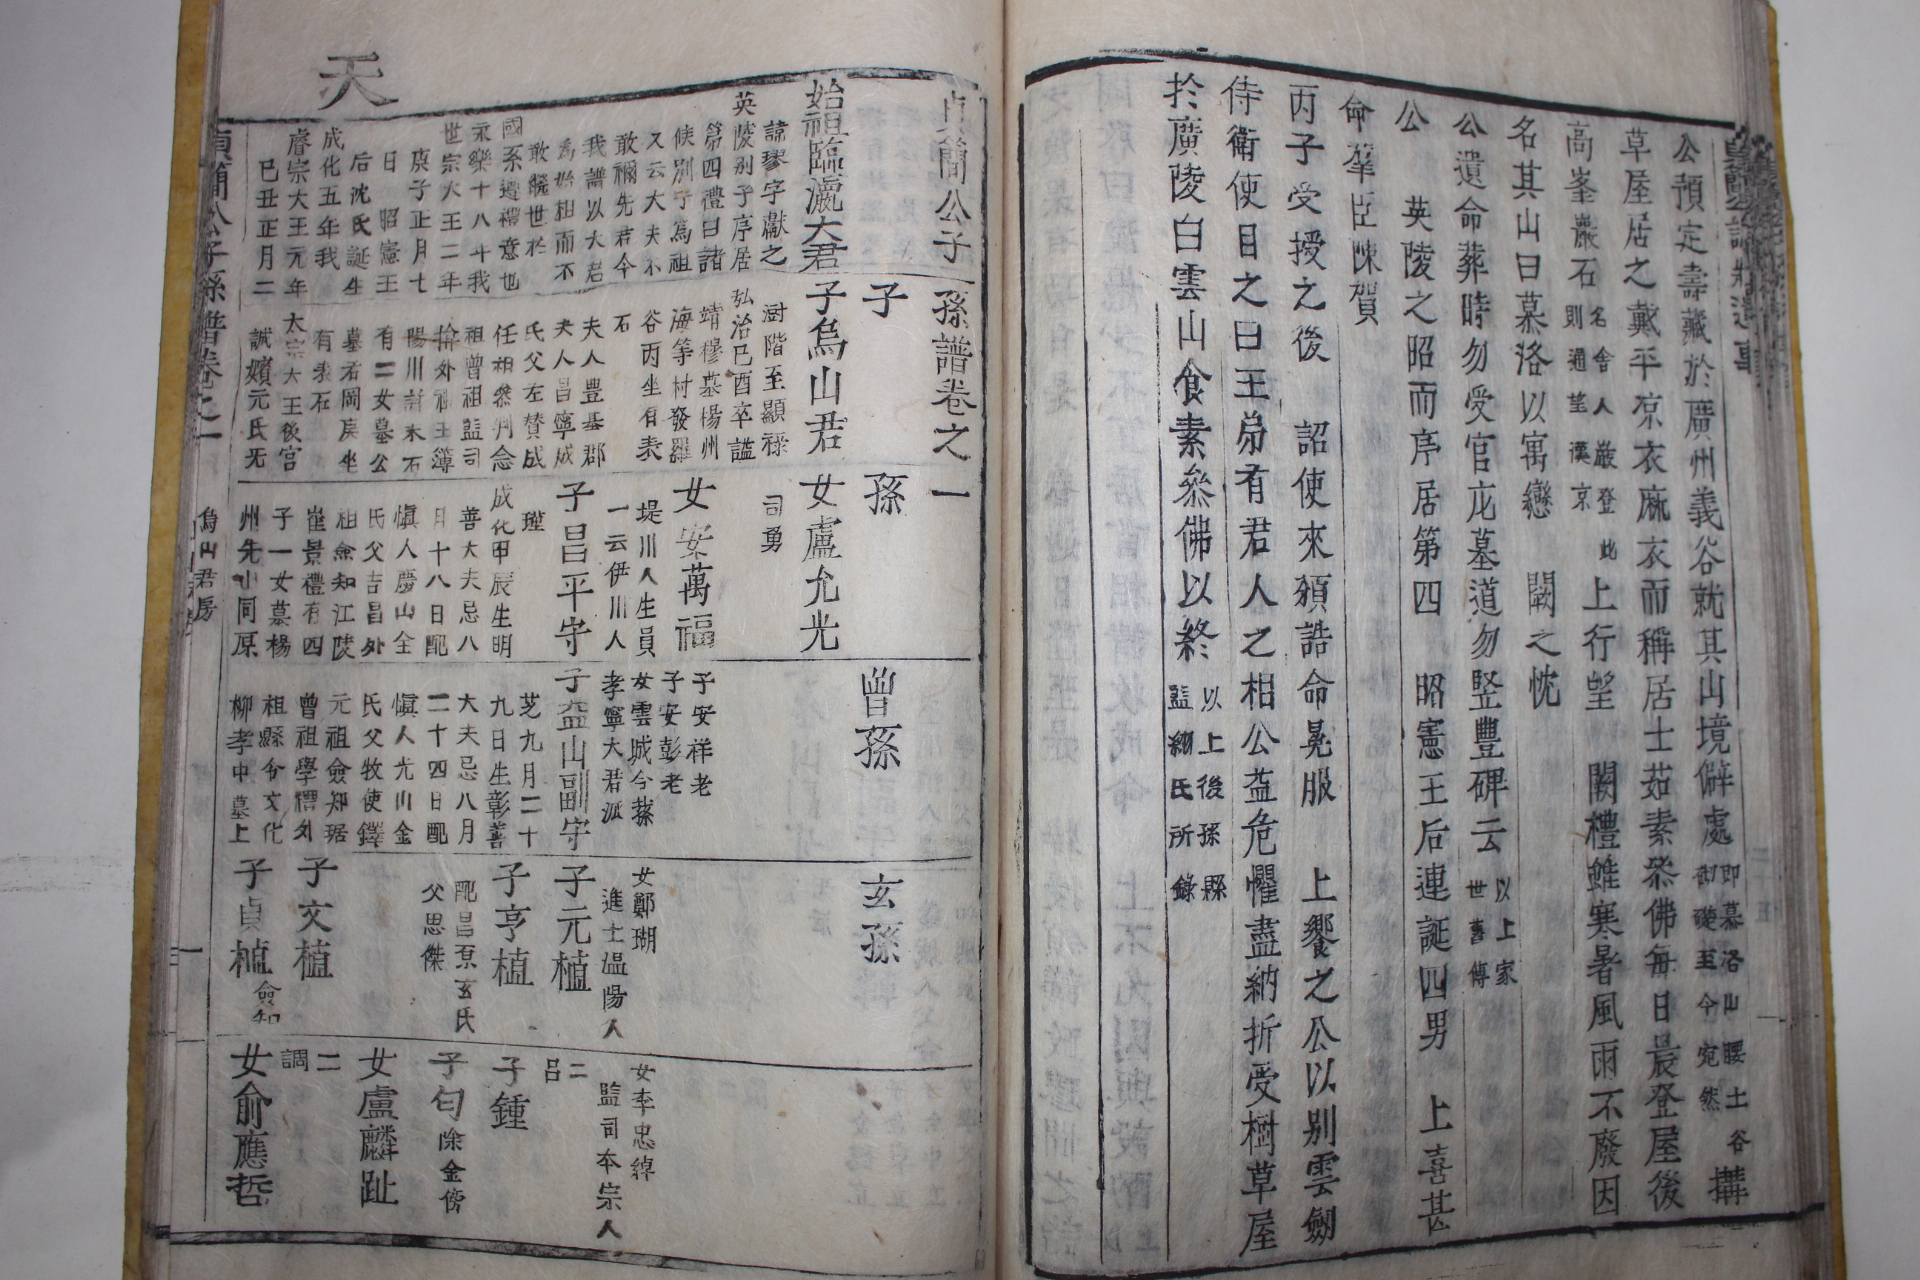 公預定壽藏於廣州義谷就其山境僻處
即慕洛山腰土谷
礎至今宛然
搆
草屋居之戴平凉衣麻衣而稱居士茹素叅佛每日晨登屋後
高峯巖石
名舍人巖登此
則通望漢京
上行望 闕禮雖寒暑風雨不廢因
名其山曰慕洛以寓戀 闕之忱
公遺命葬時勿受官庀墓道勿竪豐碑云
以上家
世舊傳
公 英陵之昭而序居第四 昭憲王后連誕四男 上喜甚
命羣臣陳賀
丙子受授之後 詔使來頒誥命晃服 上饗之公以別雲劒
侍衛使目之曰王弟有君人之相公益危懼盡納折受樹草屋
於廣陵白雲山食素叅佛以終
以上後孫縣
監綱氏所錄
天
貞簡公子孫譜卷之一
子
孫
曾孫
玄孫
始祖臨瀛大君
諱璆字獻之
英陵別子序居
第四禮曰諸
候別子爲祖
又云大夫不
敢禰先君今
我譜以大君
爲始祖而不
敢繫世於
國系遵禮意也
永樂十八年我
世宗大王二年
庚子正月七
日 昭憲王
后沈氏誕生
成化五年我
睿宗大王元年
己丑正月二
子烏山君
澍階至顯祿
弘治己酉卒謚
靖穆墓楊州
海等村發羅
谷丙坐有表
石
夫人豊基郡
夫人昌寧成
氏父左賛成
任祖叅判念
祖曾祖監司
揜外祖主簿
陽川許末石
有二女墓公
墓右岡庚坐
有表石
太宗大王後宮
誠嬪元氏无
女盧允光
司勇
女安萬福
堤川人生員
一云伊川人
子昌平守
瑾
成化甲辰生明
善大夫忌八
月十八日配
愼人慶山全
氏父吉昌外
祖僉知江陵
崔景禮有四
子一女墓楊
州先小同原
子安祥老
子安彭老
女雲城令蓀
孝寧大君派
子益山副守
芝九月二十
九日生彰善
大夫忌八月
二十四日配
愼人光山金
氏父牧使鐸
元祖僉知琚
曾祖學𥛚外
祖縣令文化
柳孝中墓上
女鄭瑚
進士溫陽人
子元植
子亨植
配昌原玄氏
父思傑
子文植
子貞植
僉知
女李忠綽
監司本宗人
二
呂
子鍾
子匀
除金傍
女盧麟趾
二
調
女俞應哲
貞簡公子孫譜卷之一
烏山君房
一